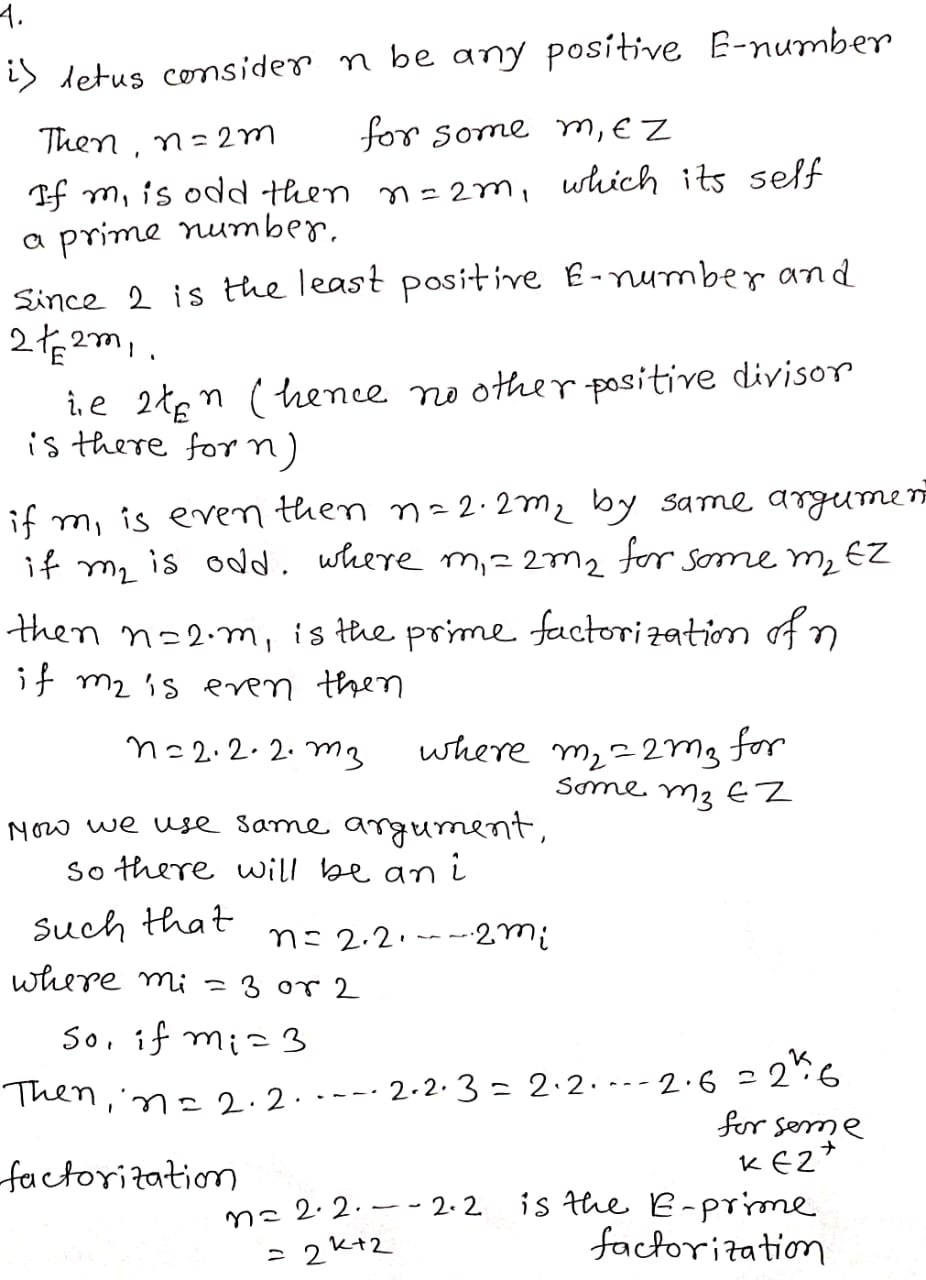 4.
i) letus consider n be any positive E-number
Then, n = 2m for some m₁ ∈ Z
If m₁ is odd then n = 2m₁ which its self
a prime number.
Since 2 is the least positive E-number and
2∤_E 2m₁.
i.e 2∤_E n (hence no other positive divisor
is there for n)
if m₁ is even then n = 2·2m₂ by same argumen
if m₂ is odd. where m₁ = 2m₂ for some m₂ ∈ Z
then n = 2·m₁ is the prime factorization of n
if m₂ is even then
n = 2·2·2·m₃ where m₂ = 2m₃ for
some m₃ ∈ Z
Now we use same argument,
so there will be an i
such that n = 2·2·----2mᵢ
where mᵢ = 3 or 2
So, if mᵢ = 3
Then, n = 2·2·-----2·2·3 = 2·2·---2·6 = 2ᵏ·6
for some
k ∈ Z⁺
factorization
n = 2·2·---2·2 is the E-prime
= 2ᵏ⁺² factorization